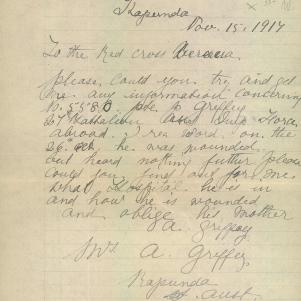 Kapunda
Nov. 15. 1917
To the Red Cross Bureau
please, could you try and get
me any information concerning
N. 5586 pte p Griffey
27 Battalion Aust Imp Force
abroad. I rec word on the
26. he was wounded
but heard nothing further please
could you find out for me
what Hospital he is in
and how he is wounded
and oblige his Mother
A. Griffey
Mrs A. Griffey
Kapunda
St. Aust.